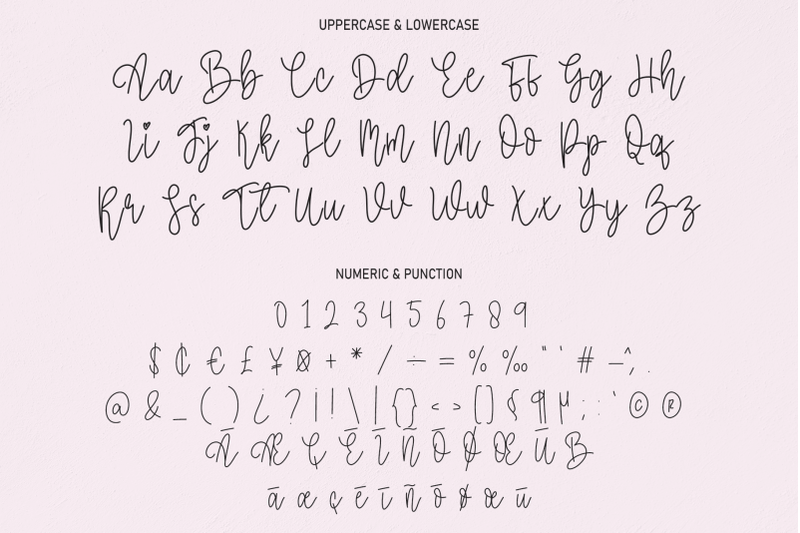 UPPERCASE & LOWERCASE
Aa Bb Cc Dd Ee Ff Gg Hh
Ii Jj Kk Ll Mm Nn Oo Pp Qq
Rr Ss Tt Uu Vv Ww Xx Yy Zz
NUMERIC & PUNCTION
0 1 2 3 4 5 6 7 8 9
$ ₵ € £ ¥ ¤ + * / ÷ = % ‰ " ' # – ^ , .
@ & _ ( ) ¿ ? ¡ ! \ | { } < > [ ] § ¶ µ ; : ` © ®
Ā Æ Ç Ē Ī Ñ Ō Ø Œ Ū B
ā æ ç ē ī ñ ō ø œ ū